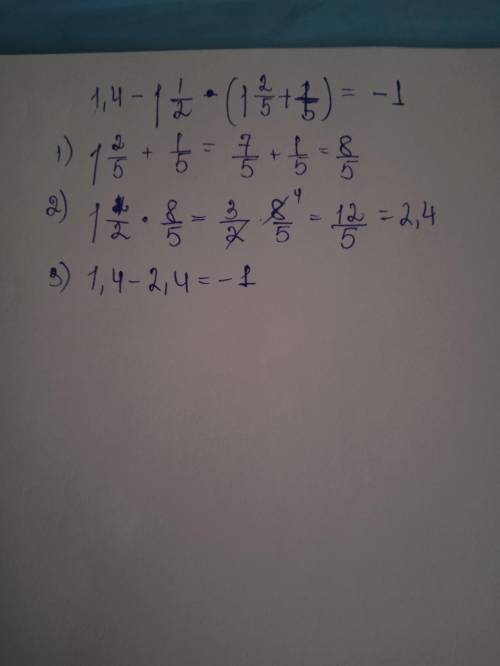 1,4 - 1 1/2 · (1 2/5 + 1/5) = -1
1) 1 2/5 + 1/5 = 7/5 + 1/5 = 8/5
2) 1 1/2 · 8/5 = 3/2 · 8/5 4 = 12/5 = 2,4
3) 1,4 - 2,4 = -1